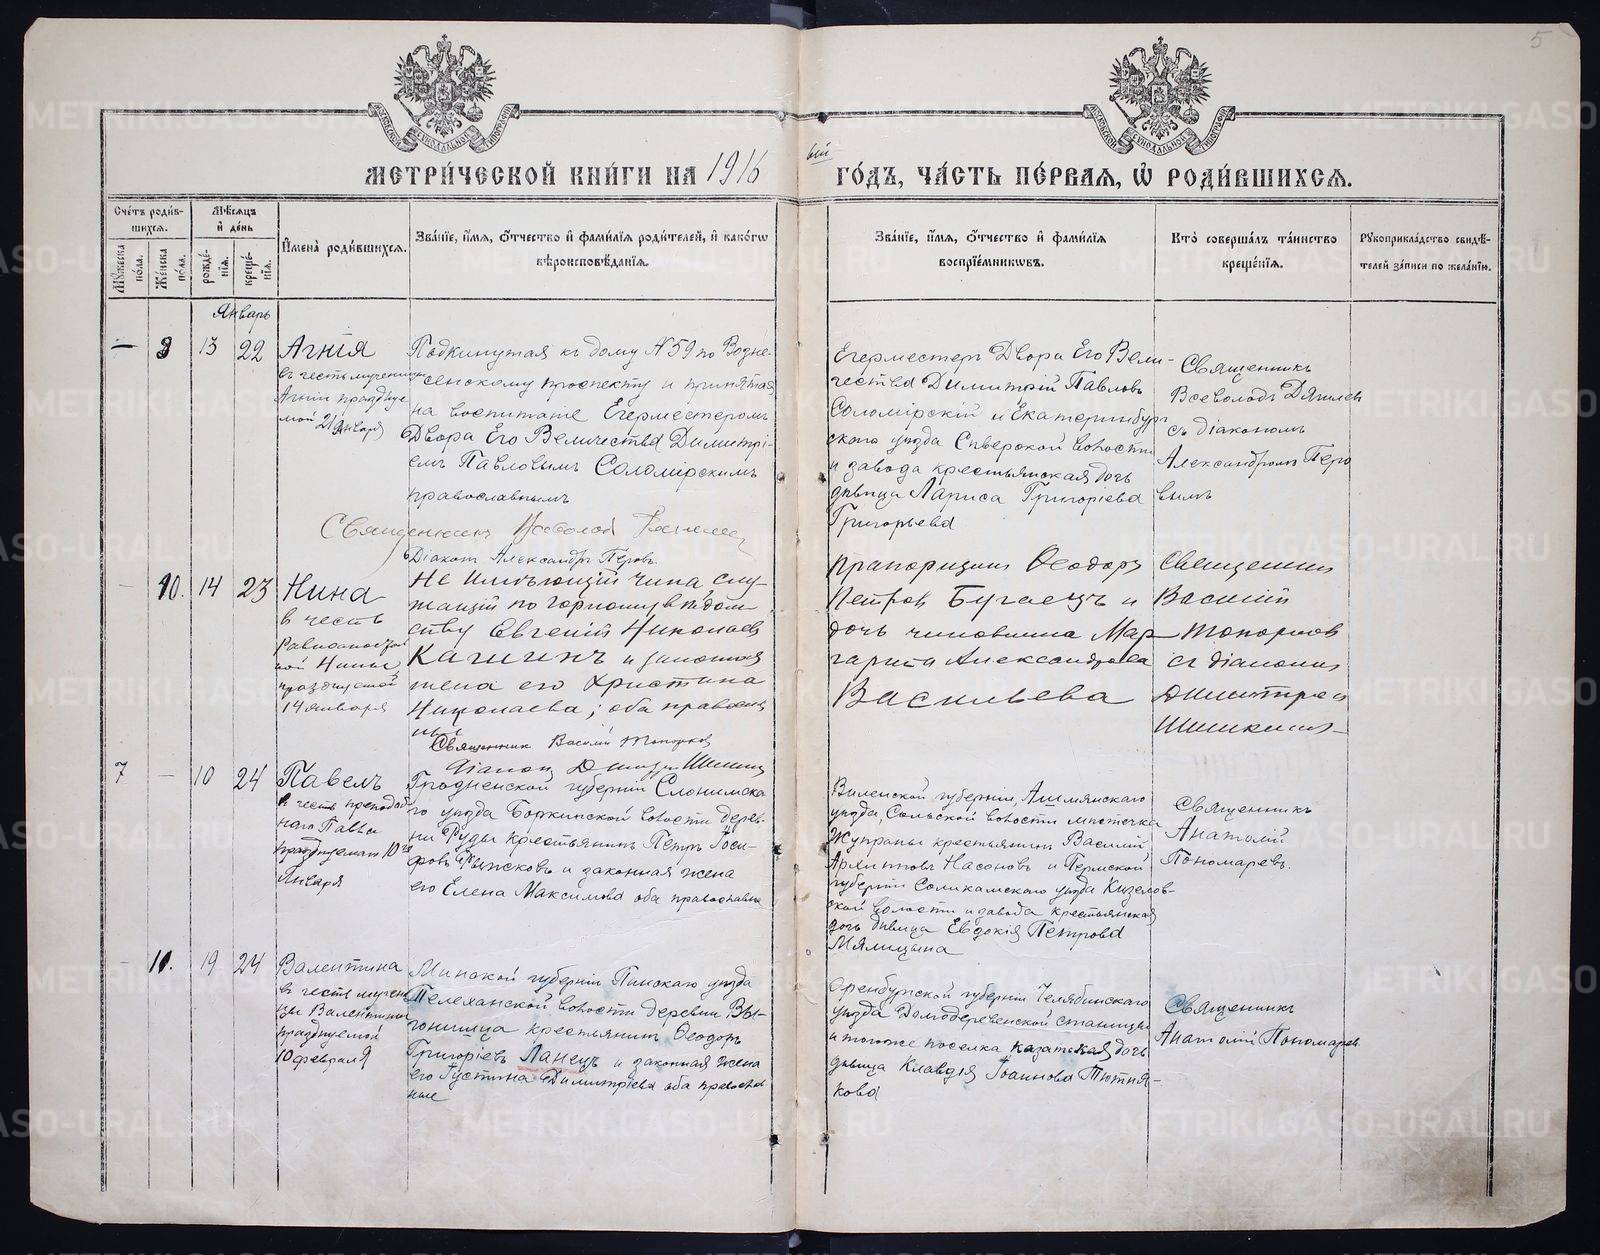 5
МЕТРИ́ЧЕСКОЙ КНИ́ГИ НА 1916 ый ГО́ДЪ, ЧА́СТЬ ПЕ́РВАѦ, Ѽ РОДИ́ВШИХСѦ.
Сче́тъ роди́вшихсѧ.
Мѣ́сѧцъ и҆ де́нь
Мꙋ́жеска по́ла.
Же́нска по́ла.
рожде́нїѧ.
креще́нїѧ.
И҆мена̀ роди́вшихсѧ.
Зва́нїе, и҆́мѧ, ѻ҆́тчество и҆ фами́лїѧ роди́телей, и҆ како́гѡ
вѣроисповѣ́данїѧ.
Зва́нїе, и҆́мѧ, ѻ҆́тчество и҆ фами́лїѧ
воспрїе́мникѡвъ.
Кто̀ соверша́лъ та́инство
креще́нїѧ.
Рꙋкоприкла́дство свидѣ́-
телей за́писи по жела́нїю.
Январь
— 9 13 22
Агнія
въ честь мученицы
Агніи празднуе
мой 21 января
Подкинутая къ дому №59 по Возне-
сенскому проспекту и принятая
на воспитаніе Егермейстеромъ
Двора Его Величества Димитрі-
емъ Павловымъ Соломірскимъ
православнымъ
Егермейстеръ Двора Его Вели-
чества Димитрій Павловъ
Соломірскій и Екатеринбур-
скаго уѣзда Сысертской волости
и завода крестьянская дочь
дѣвица Лариса Григоріева
Григорьева
Священникъ
Всеволодъ Дягилев
съ діакономъ
Александромъ Перо
вымъ
Священникъ Всеволод
Діаконъ Александръ Перовъ.
— 10. 14 23
Нина
в честь
Равноапостоль
ной Нины
празднуемой
14 января
Не имѣющій чина, слу-
жащій по горному вѣдом-
ству Евгеній Николаев
Качигинъ и законная
жена его Христина
Николаева; оба православ
ные
Священник Василій Топорков
Діакон Димитр Шишкин
прапорщик Ѳеодоръ
Петров Бугаецъ и
дочь чиновника Мар-
гарита Александрова
Васильева
Священник
Василій
Топорков
съ діаконом
Димитрием
Шишкиным
7 — 10 24
Павелъ
в честь преподоб
наго Павла
празднуемаго 10 го
Января
Гродненской губерніи Слонимска
го уѣзда Боркинской волости дерев-
ни Руды крестьянинъ Петръ Іоси-
фовъ и законная жена
его Елена Максимова оба православные
Виленской губерніи, Ашмянскаго
уѣзда, Сольской волости мѣстечка
Жупраны крестьянинъ Василій
Архиповъ Насоновъ и Пермской
губерніи Соликамскаго уѣзда Кизелов-
ской волости и завода крестьянская
дочь дѣвица Евдокія Петрова
Мялицына
Священникъ
Анатолій
Пономаревъ.
— 11. 19 24
Валентина
въ честь мучени
цы Валентины
празднуемой
10 февраля
Минской губерніи Пинскаго уѣзда
Телеханской волости деревни Вы-
гонища крестьянинъ Ѳеодоръ
Григоріевъ Ланецъ и законная жена
его Іустина Димитріева оба православ
ные
Оренбургской губерніи Челябинскаго
уѣзда Долгодеревенской станицы
и того же поселка казачская дочь
дѣвица Клавдія Іоаннова Тютня-
кова
Священникъ
Анатолій Пономарев
METRIKI.GASO-URAL.RU